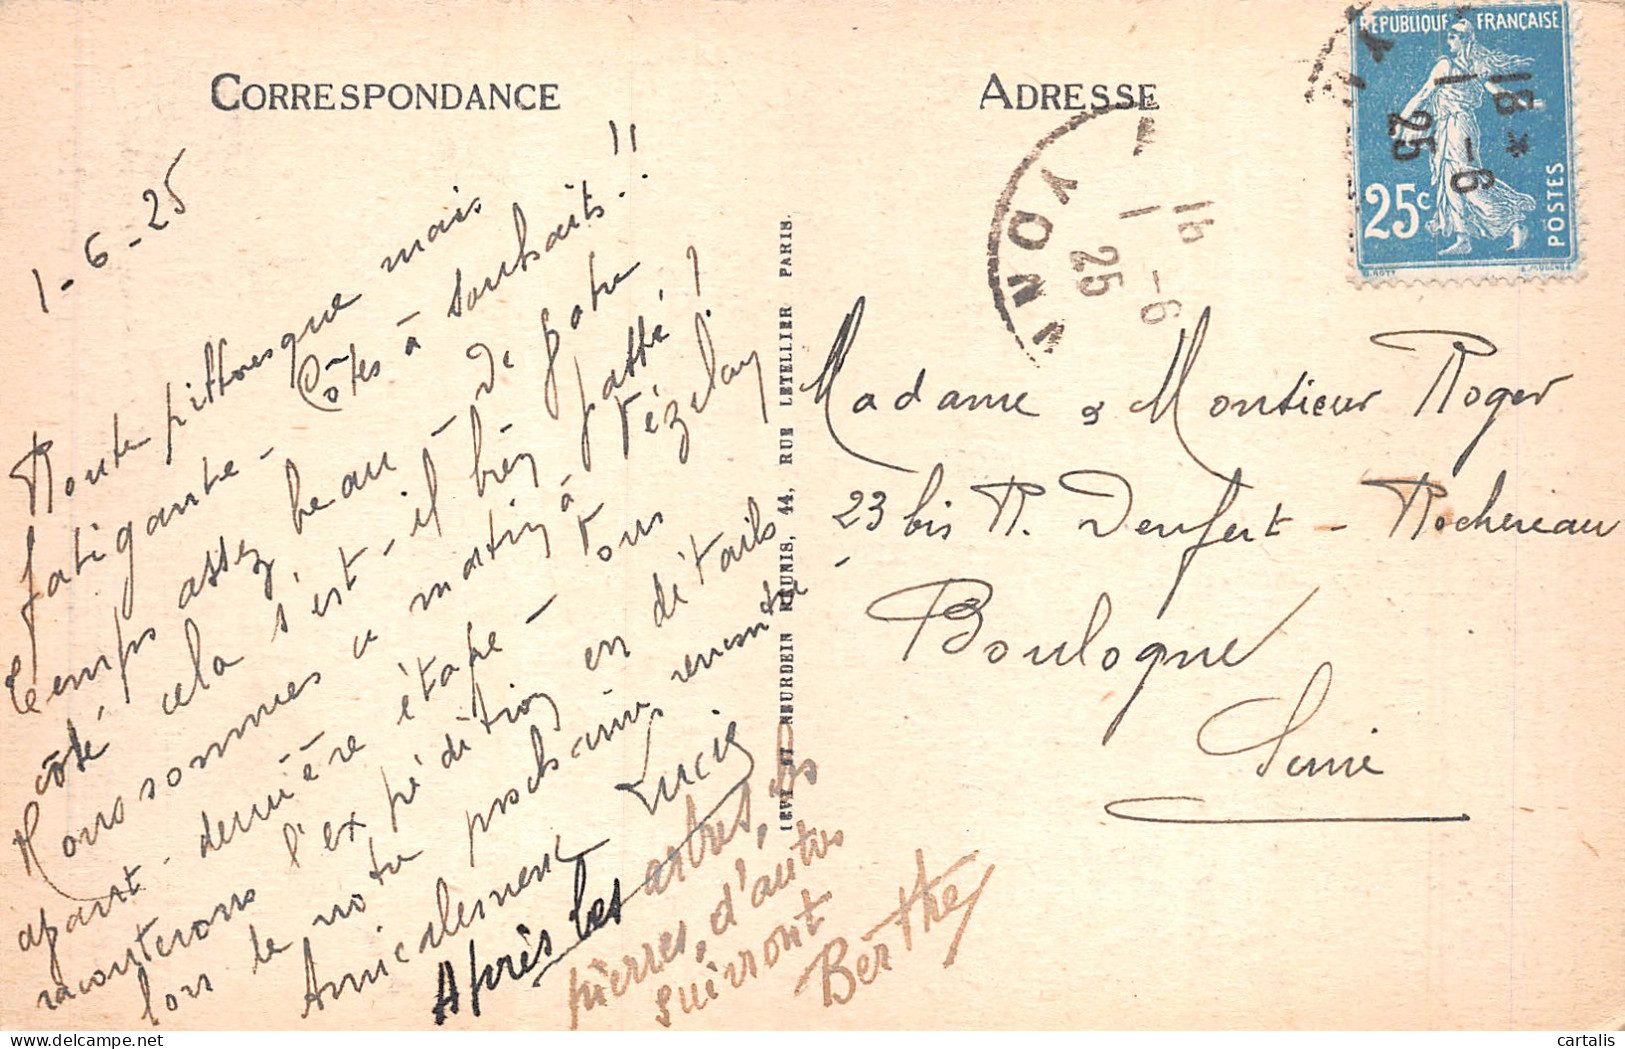 CORRESPONDANCE
1-6-25
Route pittoresque mais
fatigante - Côtes à souhaits!!
Temps assez beau - De notre
côté cela s'est-il bien passé?
Nous sommes ce matin à Vézelay
avant-dernière étape - Vous
raconterons l'expédition en détails
lors de notre prochaine rencontre -
Amicalement Lucie
Après les astres, les
pierres, d'autres
suivront
Berthe
LEVY ET NEURDEIN RÉUNIS, 44, RUE LETELLIER PARIS.
ADRESSE
16
1-6
25
RÉPUBLIQUE FRANÇAISE
18*
1-6
25
25c
POSTES
Madame & Monsieur Roger
23 bis R. Denfert-Rochereau
Boulogne
Seine
cartalis